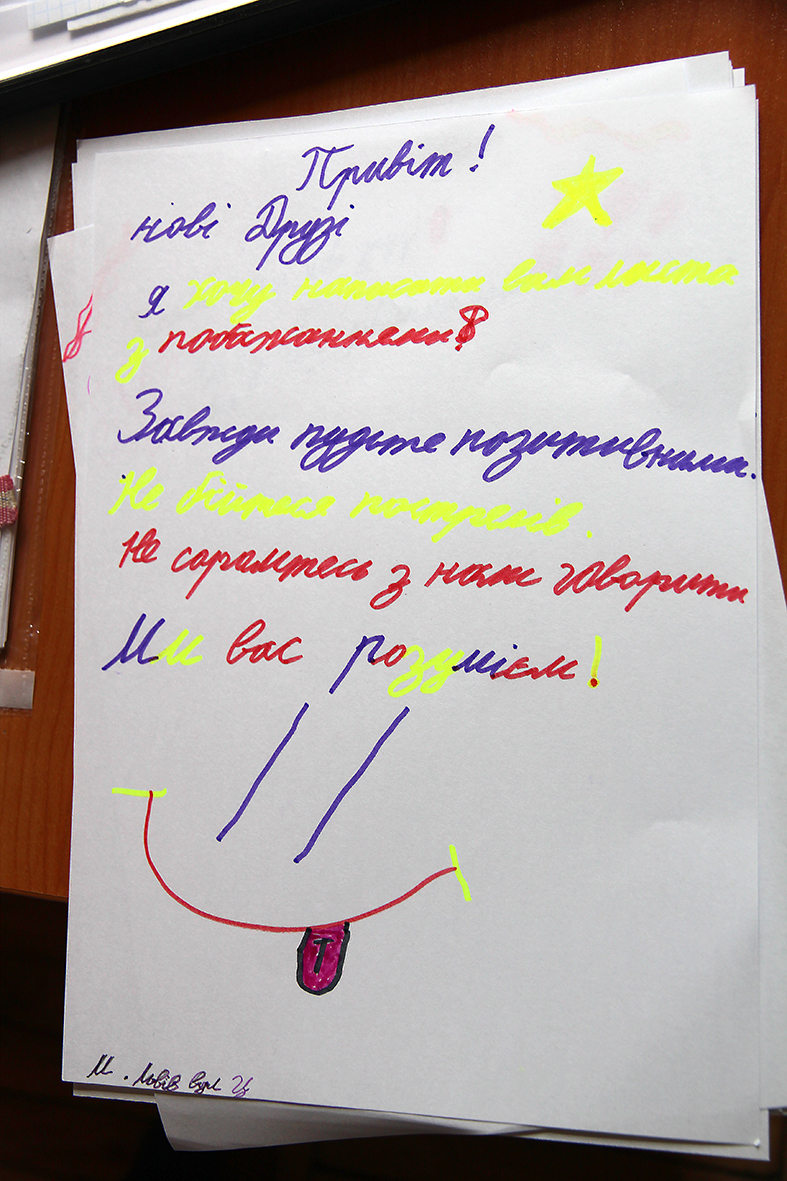 Привіт!
нові Друзі
я хочу написати вам листа
з побажаннями
Завжди пудьте позитивними.
Не бійтеся пострелів.
Не сормтесь з нами говорити
Ми вас розумієм!
Т
м. Львів вул